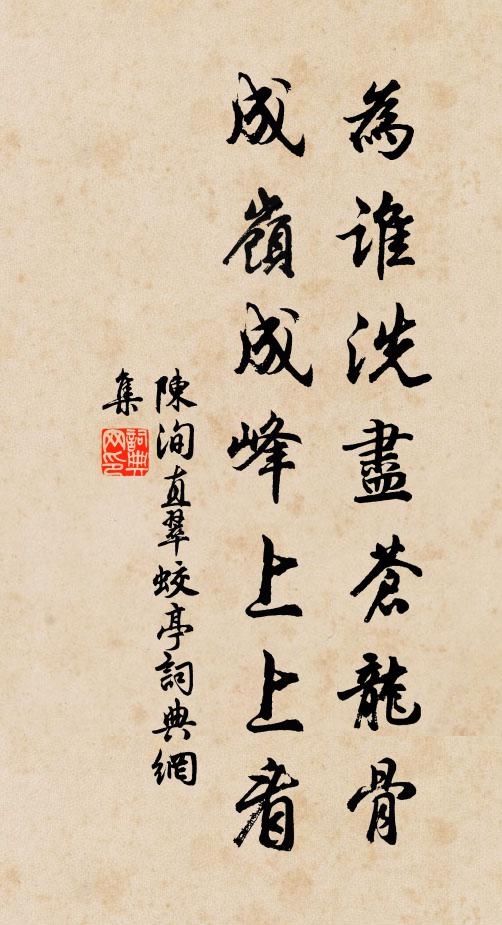 為誰洗盡蒼龍骨
成嶺成峰上上看
陳洵直翠蛟亭詞典網
集
詞典
网印